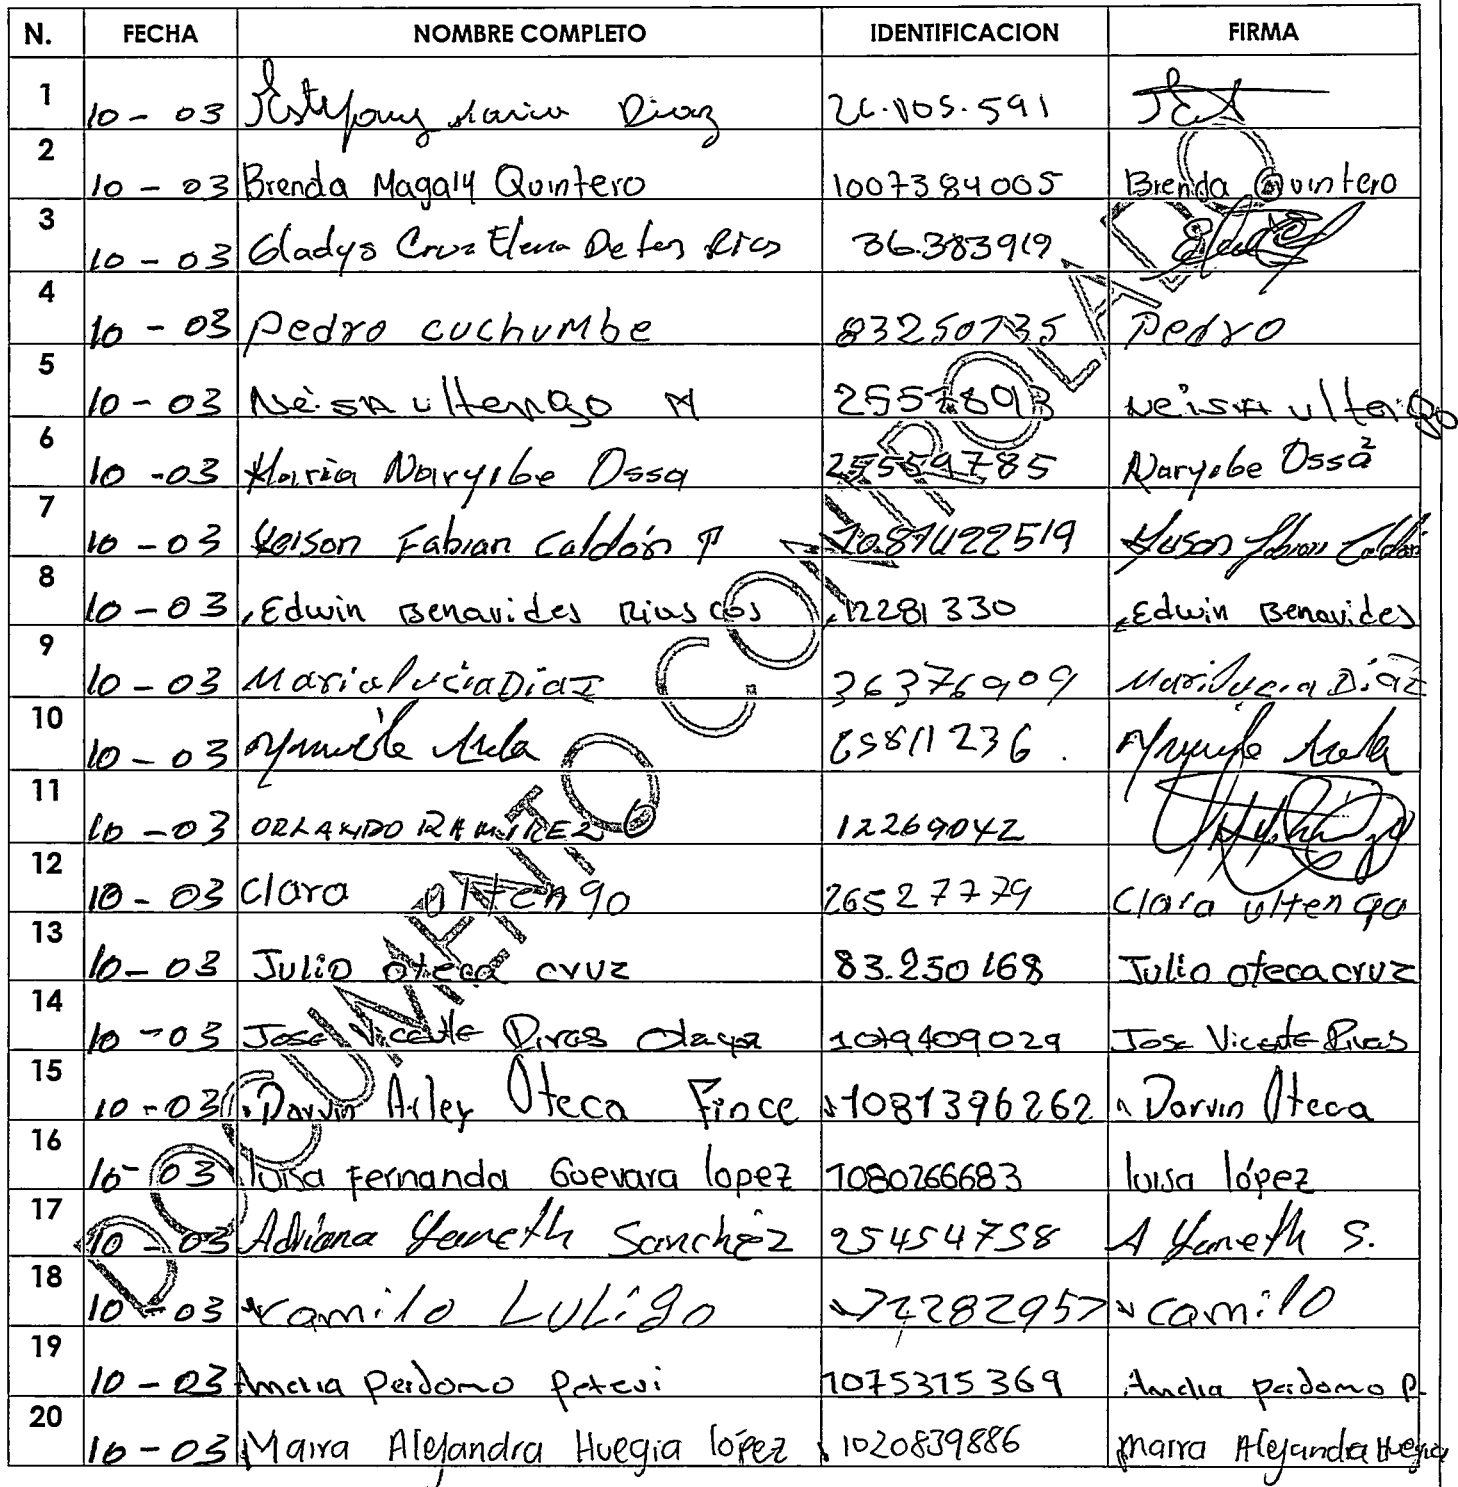 N. FECHA NOMBRE COMPLETO IDENTIFICACION FIRMA
1 10-03 Diaz
2 10-03 Brenda Magaly Quintero 1007384005 Brenda Quintero
3 10-03 Gladys Cruz Elena De los Rios 36.383919
4 10-03 Pedro cuchumbe 83250735 Pedro
5 10-03 Neisa ultengo M Neisa ultengo
6 10-03 Maria Naryibe Ossa 25559785 Naryibe Ossa
7 10-03 Yeison Fabian Caldón P 1081422519 Yeison Fabian Caldón
8 10-03 Edwin Benavides Riascos 12281330 Edwin Benavides
9 10-03 Maria lucia Diaz 36376909 Mari lucia Diaz
10 10-03
11 10-03 ORLANDO RAMIREZ O 12269042
12 10-03 Clara ultengo 26527779 Clara ultengo
13 10-03 Julio oteca cruz 83.250168 Julio oteca cruz
14 10-03 Jose Vicente Rivas Olaya 1019409029 Jose Vicente Rivas
15 10-03 Darvin Arley Oteca Fince 1081396262 Darvin Oteca
16 10-03 luisa Fernanda Guevara lopez 1080266683 luisa lópez
17 10-03 Adriana Yaneth Sanchez 25454758 A Yaneth S.
18 10-03 camilo LULigo camilo
19 10-03 Amelia perdomo Petevi 1075315369 Amelia perdomo P.
20 10-03 Maira Alejandra Huegia lópez 1020839886 maira Alejandra Huegia
DOCUMENTO CONTROLADO